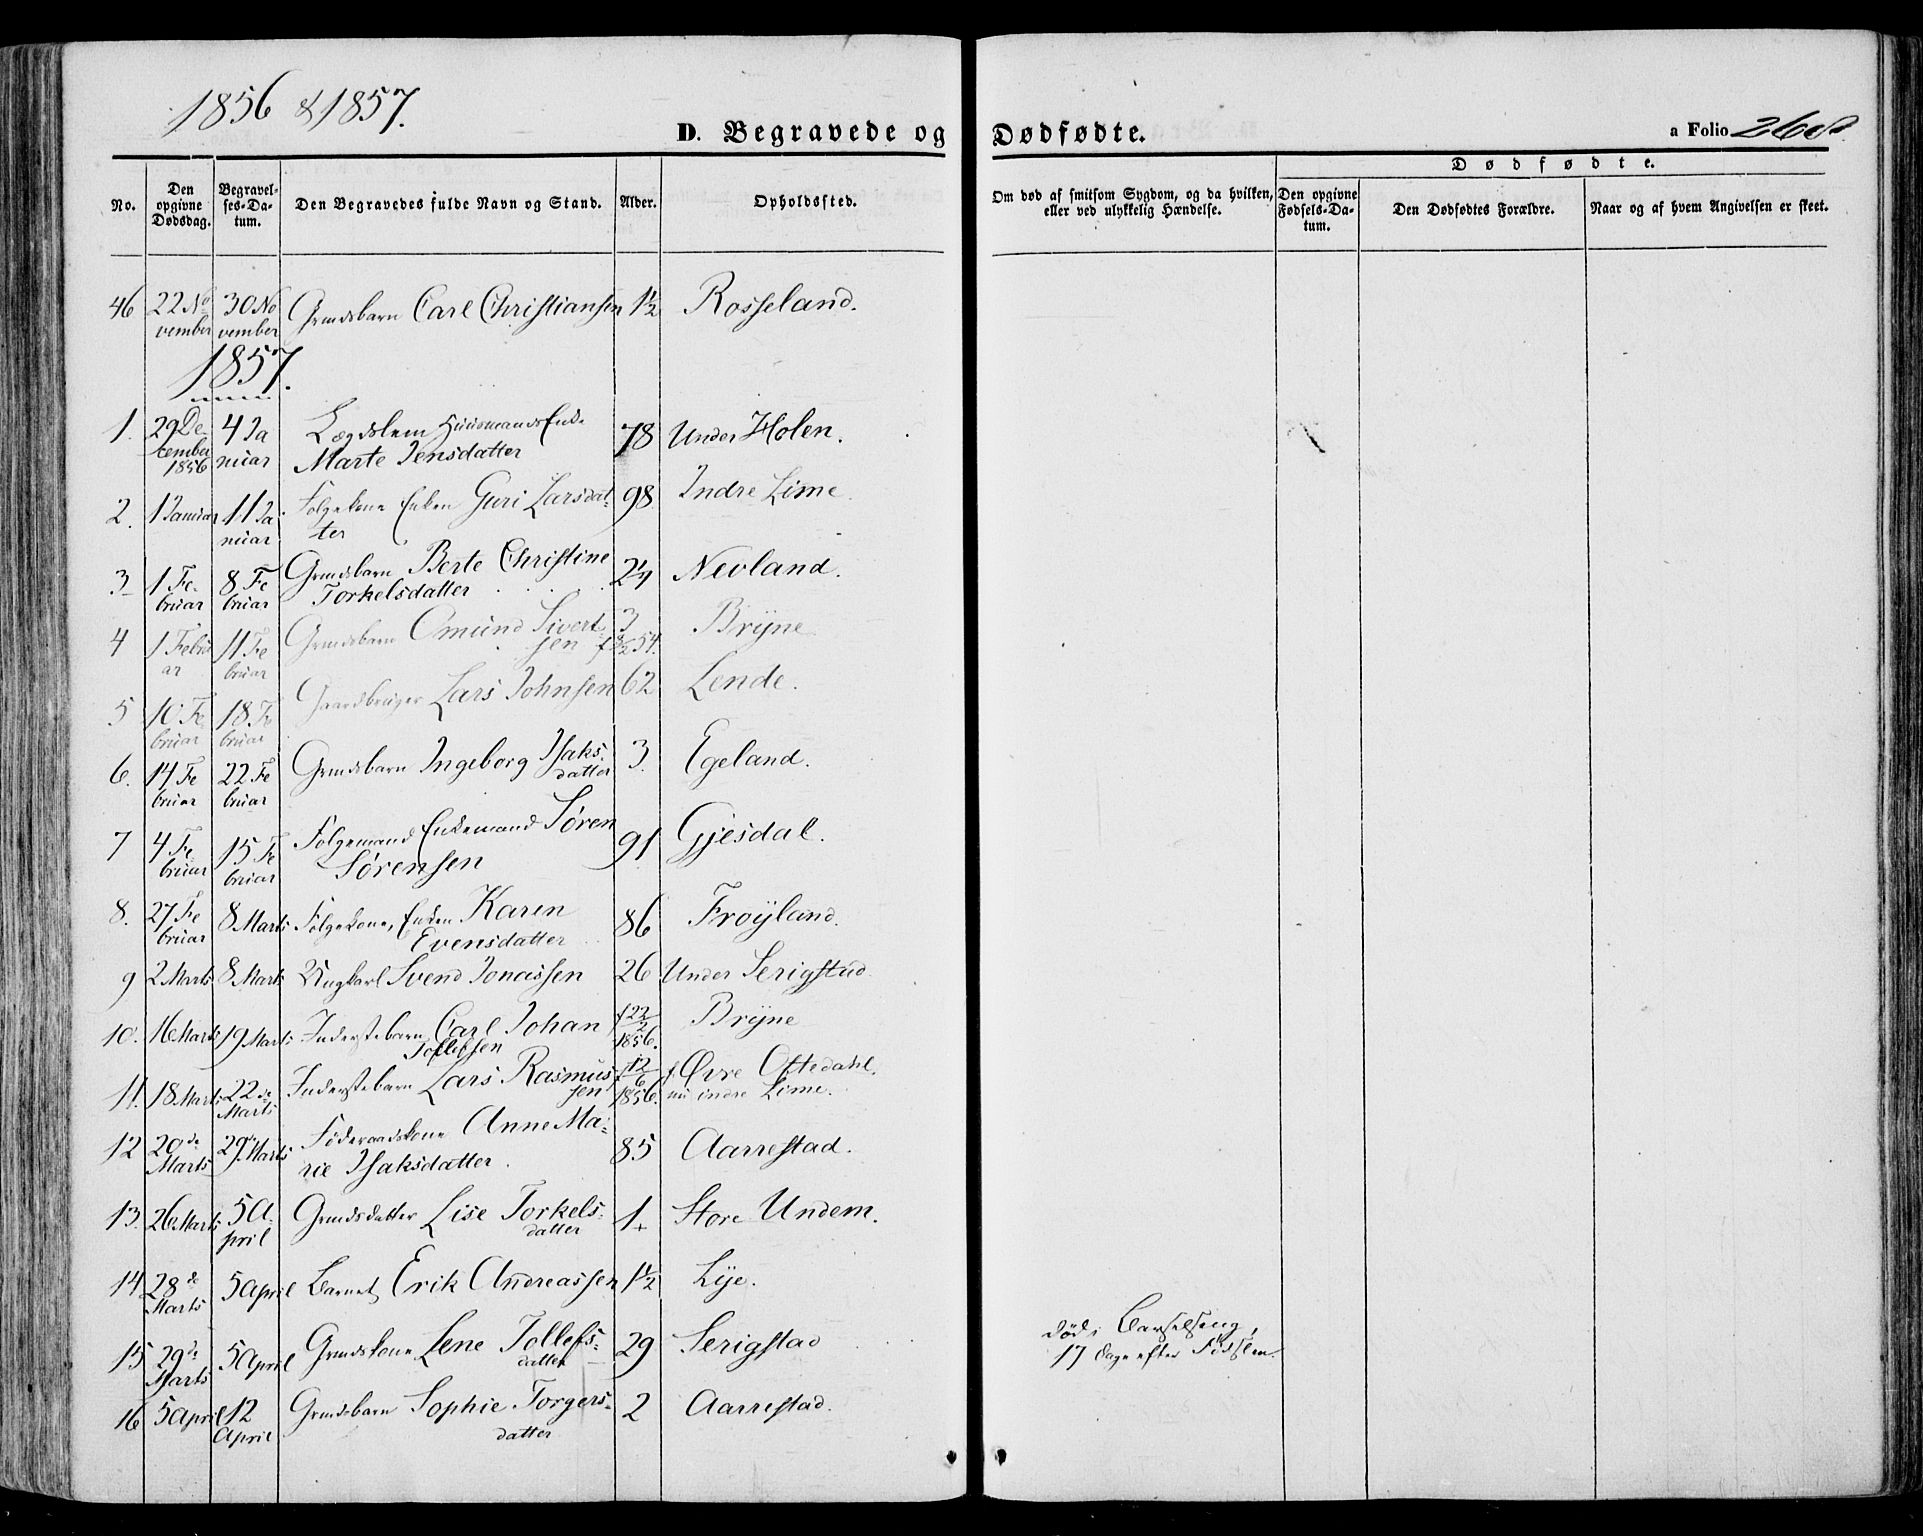 1856 & 1857.
D. Begravede og Dødfødte.
a Folio 268
No.
Den opgivne Dødsdag.
Begravelses-Datum.
Den Begravedes fulde Navn og Stand.
Alder.
Opholdssted.
Om død af smitsom Sygdom, og da hvilken,
eller ved ulykkelig Hændelse.
Dødfødte.
Den opgivne Fødsels-Datum.
Den Dødfødtes Forældre.
Naar og af hvem Angivelsen er skeet.
46 22 November 30 November Grmdsbarn Carl Christiansen 1½ Rosseland.
1857.
1. 29 December 1856 4 Januar Lægdslem Huusmands Enke
Marte Jensdatter 78 Under Holen.
2. 1 Januar 11 Januar Folgekone Enken Guri Larsdat-
ter 98 Indre Lime.
3 1 Februar 8 Februar Grmdsbarn Berte Christine
Torkelsdatter 2¼ Nevland.
4 1 Februar 11 Februar Grmdsbarn Omund Sivert-
sen 3 Bryne
5 10 Februar 18 Februar Gaardbruger Lars Johnsen 62 Lende.
6. 14 Februar 22 Februar Grmdsbarn Ingeborg Isaks-
datter 3. Egeland.
7 4 Februar 15 Februar Folgemand Enkemand Søren
Sørensen 91 Gjesdal.
8. 27 Februar 8 Marts Folgekone, Enken Karen
Evensdatter 86 Frøyland.
9 2 Marts 8 Marts Ungkarl Svend Jonassen 26 Under Serigstad
10. 16 Marts 19 Marts Inderstebarn Carl Johan
Tollefsen f 22/2 1856. Bryne
11. 18 Marts 22de Marts Inderstebarn Lars Rasmus-
sen f 12/6 1856. f. Øvre Oftedahl.
nu indre Lime.
12 20de Marts 29 Marts Føderaadskone Anne Ma-
rie Isaksdatter. 85 Aarrestad.
13. 26 Marts 5 April Grmdsdatter Lise Torkels-
datter 1 Store Undem.
14 28de Marts 5 April Barnet Erik Andreassen 1½ Lye.
15 29de Marts 5 April Grmdskone Lene Tollefs-
datter 29 Serigstad død i Barselseng,
17 Dage efter Fødslen.
16 5 April 12 April Grmdsbarn Sophie Torgers-
datter 2 Aarrestad.